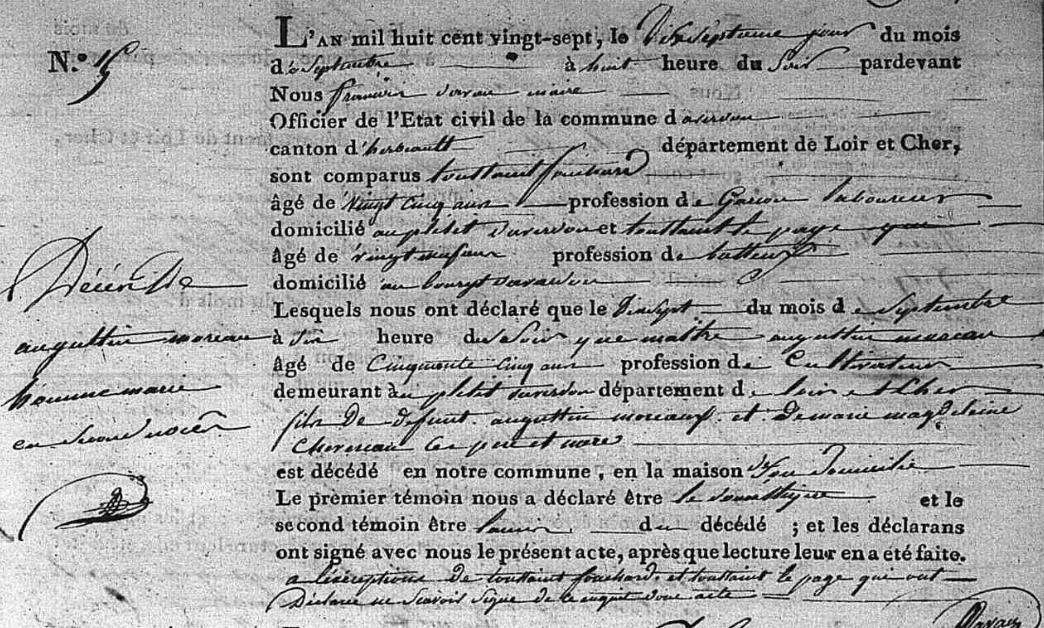 L'AN mil huit cent vingt-sept, le Dix septieme jour du mois
N.º 15
de Septembre à huit heure du Soir pardevant
Nous françois davau maire
Officier de l'Etat civil de la commune d averdon
canton d'herbault département de Loir et Cher,
sont comparus touttaint fouchard
âgé de Vingt Cinq ans profession de Garcon laboureur
domicilié au plétét daverdon et touttaint le page
âgé de vingt neuf ans profession de batteur
domicilié au bourgt daverdon
Lesquels nous ont déclaré que le Dixsept du mois d e Septembre
Décès De
augustin moreau
à Six heure du Soir que maître augustin moreau
âgé de Cinquonte Cinq ans profession de Cultivateur
homme marie
demeurant au plétét daverdon département de loir et Cher
en Segond noces
fils De defunt augustin moreau et De marie magdeleine
ces pere et mere
est décédé en notre commune, en la maison de Son Domicile
Le premier témoin nous a déclaré être le domestique et le
second témoin être l'amie du décédé ; et les déclarans
ont signé avec nous le présent acte, après que lecture leur en a été faite.
a l'exception De touttaint fouchard et touttaint le page qui ont
Déclaré ne Scavoir Signé de ce enquit donc acte
Davau